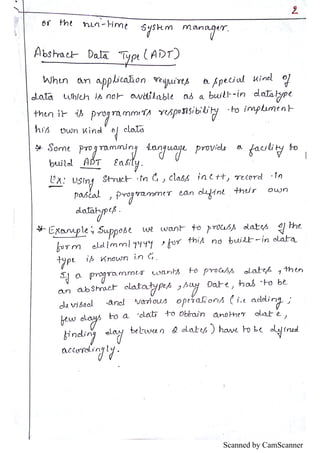 2
or the run-time system manager.
Abstract Data Type (ADT)
When an application requires a special kind of
data which is not available as a built-in datatype
then it is programmers responsibility to implement
his own kind of data
* Some programming language provide a facility to
build ADT Easily.
Ex: Using Struct in C, class in c++, record in
pascal, programmer can define their own
datatypes.
* Example: Suppose we want to process dates of the
form dd/mm/yyyy, for this no built-in data
type is known in C.
If a programmer wants to process dates, then
an abstract datatypes, say Date, has to be
devised and various operations (i.e adding
few days to a date to obtain another date,
finding day between 2 dates) have to be defined
accordingly.
Scanned by CamScanner